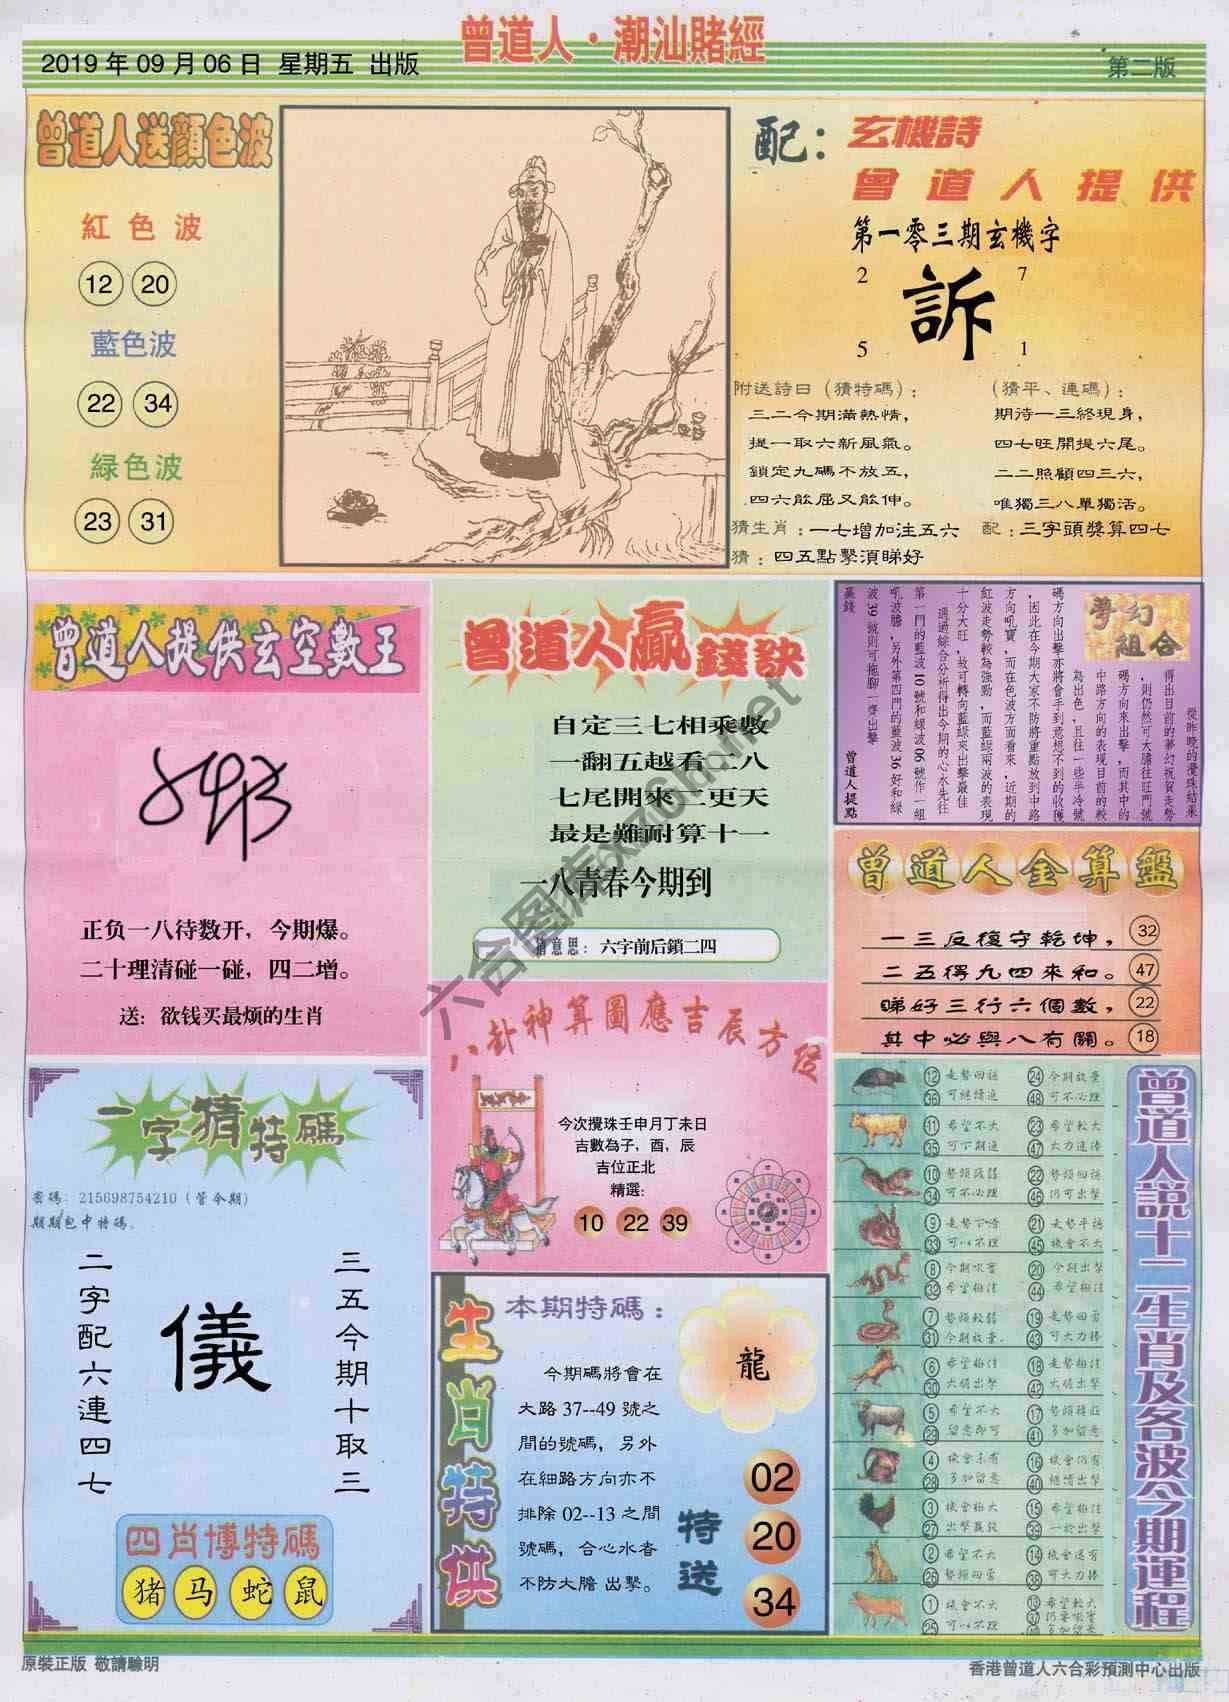 曾道人·潮汕賭經
2019年09月06日 星期五 出版
第二版
曾道人送顔色波
紅色波
12 20
藍色波
22 34
緑色波
23 31
配：玄機詩
曾道人提供
第一零三期玄機字
2 7
訴
5 1
附送詩曰（猜特碼）：
三二今期滿熱情，
提一取六新風氣。
鎖定九碼不放五，
四六能屈又能伸。
（猜平、連碼）：
期待一三終現身，
四七旺開提六尾。
二二照顧四三六，
唯獨三八單獨活。
猜生肖：一七增加注五六
配：三字頭獎算四七
猜：四五點擊須睇好
曾道人提供玄空數王
正负一八待数开，今期爆。
二十理清碰一碰，四二增。
送：欲钱买最烦的生肖
曾道人贏錢訣
自定三七相乘數
一翻五越看二八
七尾開來二更天
最是難耐算十一
一八青春今期到
猜意思：六字前后鎖二四
夢幻組合
從昨晚的攪珠結果
得出目前的夢幻祝賀走勢
，則仍然可大膽往旺門號
碼方向來出擊，而其中的
中路方向的表現目前的較
為出色，且往一些半冷號
碼方向出擊亦將會手到意想不到的收穫
，因此在今期大家不防將重點放到中路
方向吼寶，而在色波方面看來，近期的
紅波走勢較為強勁，而藍綠兩波的表現
十分大旺，故可轉向藍綠來出擊最佳
。通過綜合分析得出今期的心水先往
第一門的藍波10號和綠波06號作一組
吼波膽，另外第四門的藍波36好和綠
波39號則可拖腳一齊出擊
贏錢
曾道人提點
曾道人金算盤
一三反復守乾坤， 32
二五得九四來和。 47
睇好三行六個數， 22
其中必與八有關。 18
八卦神算圖應吉辰方位
今次攪珠壬申月丁未日
吉數為子，酉，辰
吉位正北
精選：
10 22 39
一字猜特碼
密碼：215698754210（管今期）
期期包中特碼。
三五今期十取三
儀
二字配六連四七
四肖博特碼
猪 马 蛇 鼠
生肖特供
本期特碼：
龍
今期碼將會在
大路37--49號之
間的號碼，另外
在細路方向亦不
排除02--13之間
號碼，合心水者
不防大膽 出擊。
特送
02
20
34
曾道人説十二生肖及各波今期運程
12 走勢回穩 24 今期放量
36 可繼續追 48 可不必理
11 希望不大 23 希望較大
35 可下期追 47 大力追捧
10 22 勢頭回穩
34 可不必理 46 仍可出擊
9 走勢下滑 21 走勢平穩
33 可以不理 45 機會不大
8 今期吼實 20 今期出擊
32 希望極佳 44 希望極佳
7 勢頭較弱 19 走勢回雷
31 今期放量 43 可大力捧
6 希望極佳 18 走勢極佳
30 大膽出擊 42 大膽出擊
5 希望不大 17
29 留意即可 41 多加留意
4 機會未有 16 機會仍有
28 多加留意 40 繼續出擊
3 機會極大 15 希望極佳
27 出擊贏錢 39 一於出擊
2 希望不大 14 機會還有
26 勢頭回雷 38 可大力捧
1 機會不大 13 希望較大
25 可以不理 37 仍要吼實
49 多加留意
原裝正版 敬請驗明
香港曾道人六合彩預測中心出版